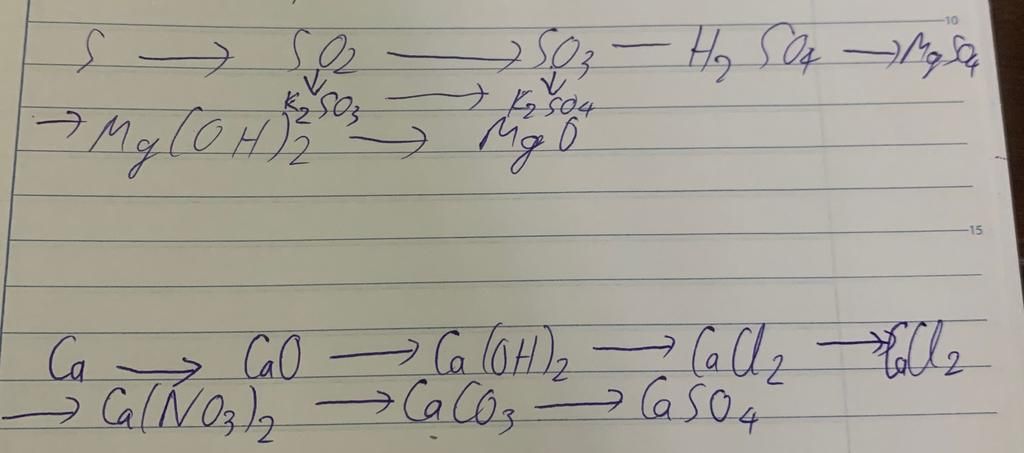 S → SO2 → SO3 — H2SO4 → MgSO4
↓ ↓
K2SO3 → K2SO4
→ Mg(OH)2 → MgO
Ca → CaO → Ca(OH)2 → CaCl2 → CaCl2
→ Ca(NO3)2 → CaCO3 → CaSO4
10
15